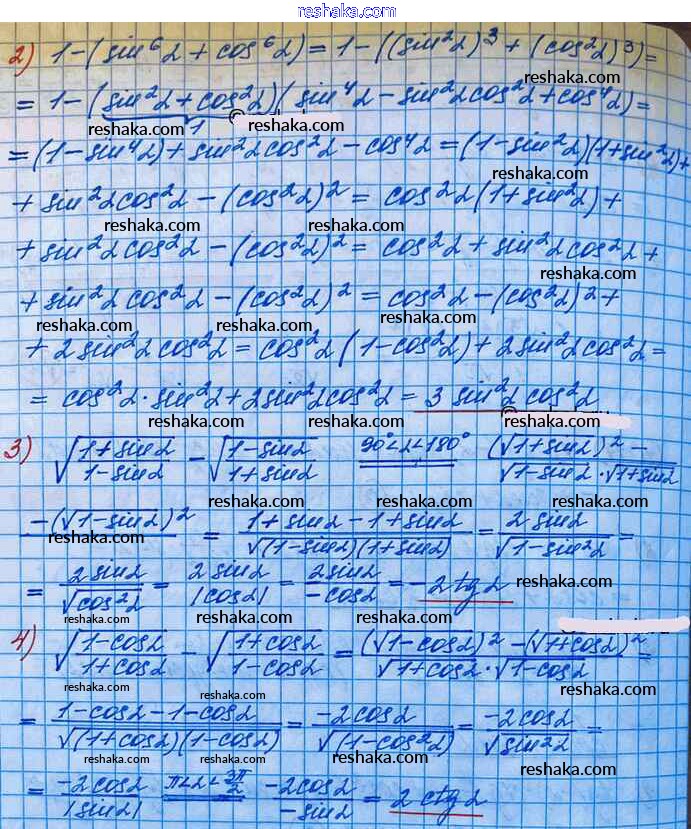 reshaka.com
2) 1-(sin⁶α + cos⁶α) = 1-((sin²α)³ + (cos²α)³) =
reshaka.com
= 1-(sin²α + cos²α)(sin⁴α - sin²α cos²α + cos⁴α) =
1
reshaka.com reshaka.com
= (1-sin⁴α) + sin²α cos²α - cos⁴α = (1-sin²α)(1+sin²α) +
reshaka.com
+ sin²α cos²α - (cos²α)² = cos²α (1+sin²α) +
reshaka.com reshaka.com
+ sin²α cos²α - (cos²α)² = cos²α + sin²α cos²α +
reshaka.com
+ sin²α cos²α - (cos²α)² = cos²α - (cos²α)² +
reshaka.com reshaka.com
+ 2 sin²α cos²α = cos²α (1-cos²α) + 2 sin²α cos²α =
reshaka.com reshaka.com reshaka.com
= cos²α · sin²α + 2 sin²α cos²α = 3 sin²α cos²α
reshaka.com reshaka.com
3) √((1+sin α)/(1-sin α)) - √((1-sin α)/(1+sin α)) 90°<α<180° = ((√(1+sin α))² -
reshaka.com reshaka.com reshaka.com
-(√(1-sin α))²)/(√(1-sin α) · √(1+sin α)) = (1+sin α - 1+sin α)/√((1-sin α)(1+sin α)) = 2 sin α/√(1-sin²α) =
reshaka.com reshaka.com
= 2 sin α/√(cos²α) = 2 sin α/|cos α| = 2 sin α/(-cos α) = -2 tg α
reshaka.com
reshaka.com reshaka.com
4) √((1-cos α)/(1+cos α)) - √((1+cos α)/(1-cos α)) = ((√(1-cos α))² - (√(1+cos α))²)/(√(1+cos α) · √(1-cos α)) =
reshaka.com reshaka.com reshaka.com
= (1-cos α - 1-cos α)/√((1+cos α)(1-cos α)) = -2 cos α/√(1-cos²α) = -2 cos α/√(sin²α) =
reshaka.com reshaka.com reshaka.com
= -2 cos α/|sin α| π<α<3π/2 = -2 cos α/(-sin α) = 2 ctg α
reshaka.com reshaka.com reshaka.com